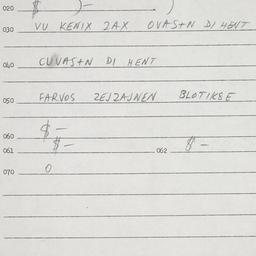 020 $ )- )
030 VU KENIX ZAX OVASTN DI HENT
040 CUVASTN DI HENT
050 FARVOS ZEJZAJNEN BLOTIKSE
060 $ -
061 $ - 062 $ -
070 0